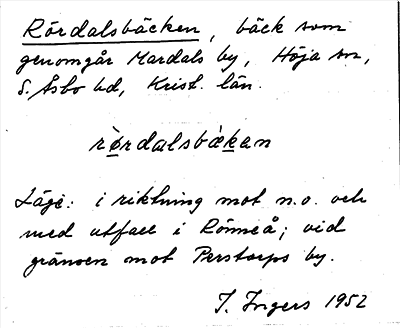 Rördalsbäcken, bäck som
genomgår Mardals by, Höja sn,
S. Åsbo hd, Krist. län.
rördalsbækan
Läge: i riktning mot n.o. och
med utfall i Rönneå; vid
gränsen mot Perstorps by.
I. Ingers 1952